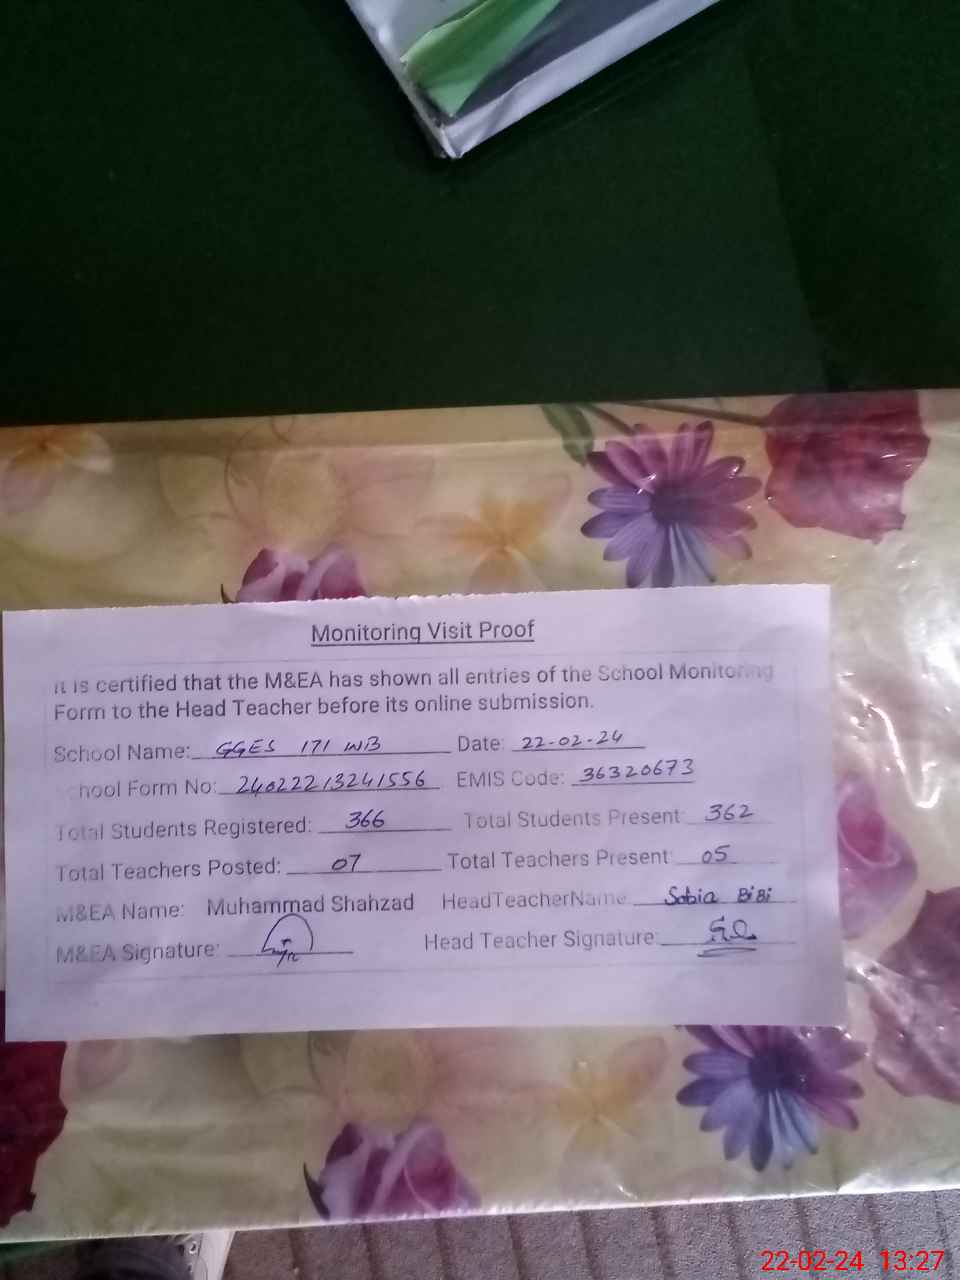 Monitoring Visit Proof
It is certified that the M&EA has shown all entries of the School Monitoring
Form to the Head Teacher before its online submission.
School Name: GGES 171 WB Date: 22-02-24
School Form No: 24022213241556 EMIS Code: 36320673
Total Students Registered: 366 Total Students Present: 362
Total Teachers Posted: 07 Total Teachers Present: 05
M&EA Name: Muhammad Shahzad HeadTeacherName Sobia BiBi
M&EA Signature: Head Teacher Signature:
22-02-24 13:27